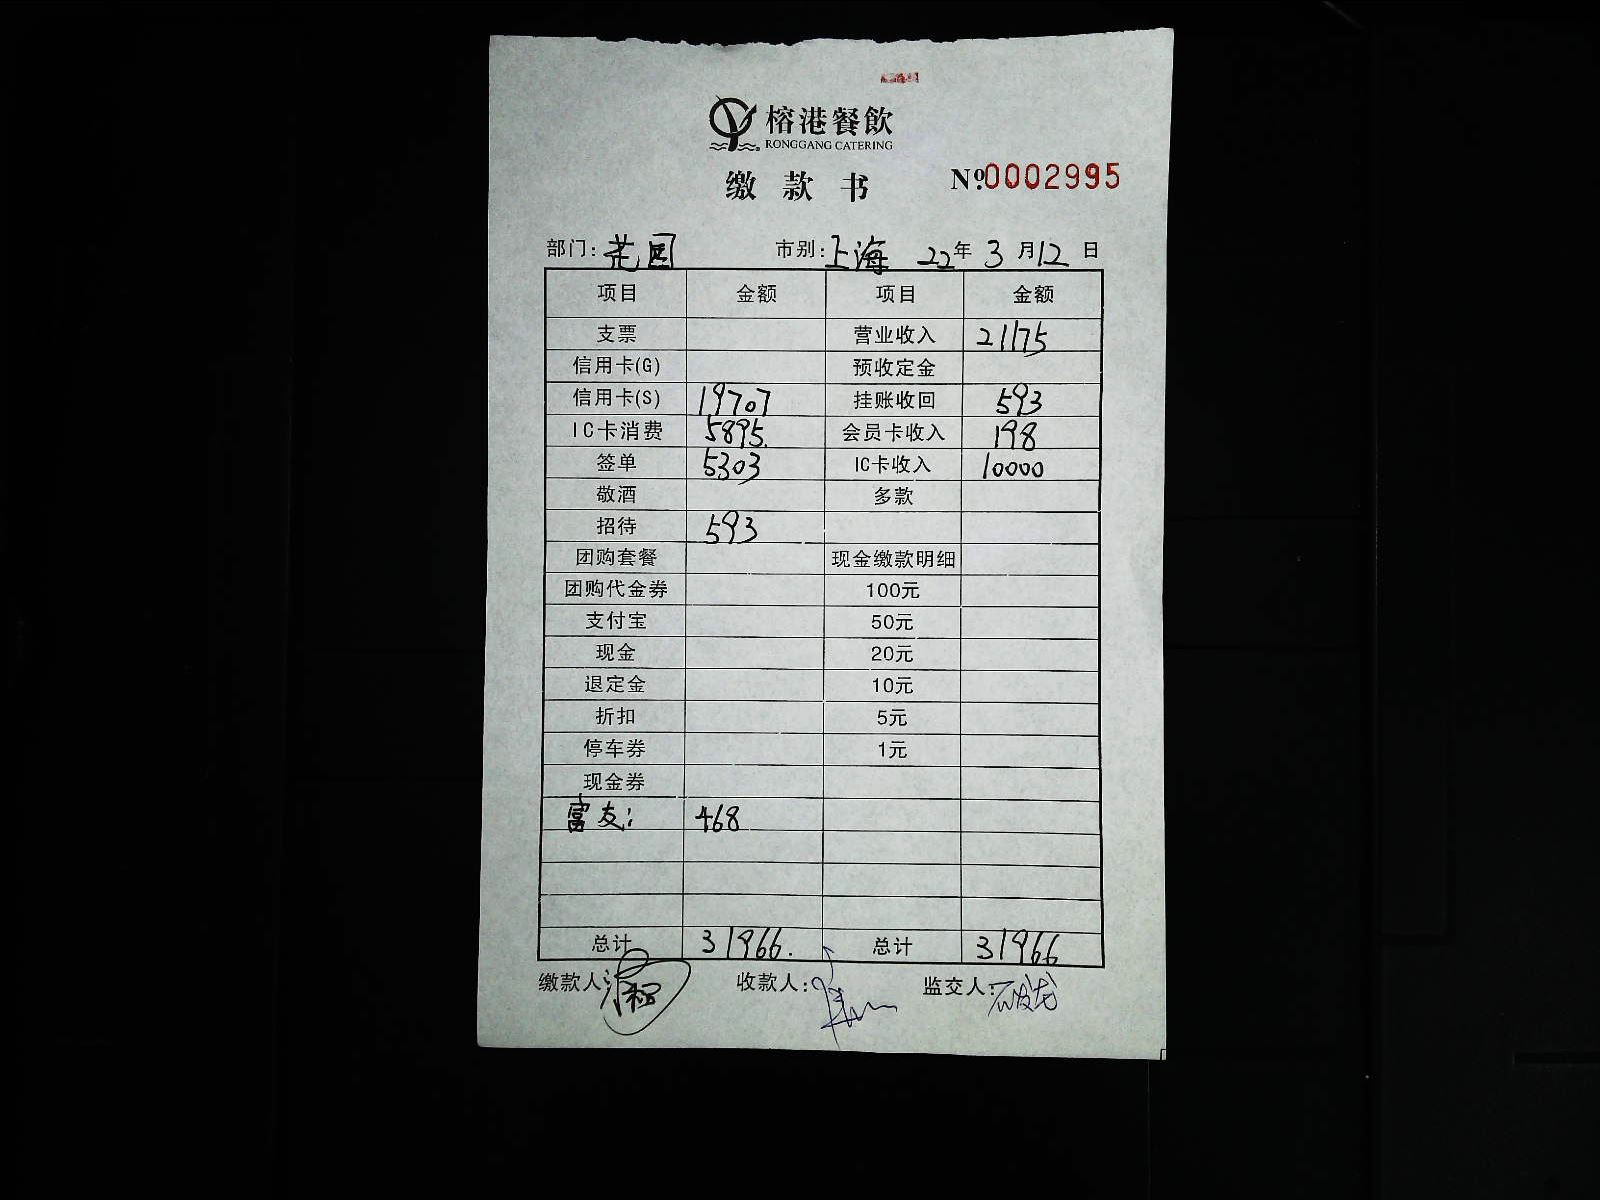 榕港餐飲
RONGGANG CATERING
缴款书
No.0002995
部门: 花园 市别: 上海 22年 3月 12日
项目 金额 项目 金额
支票 营业收入 21175
信用卡(G) 预收定金
信用卡(S) 19707 挂账收回 593
IC卡消费 5895. 会员卡收入 198
签单 5303 IC卡收入 10000
敬酒 多款
招待 593
团购套餐 现金缴款明细
团购代金券 100元
支付宝 50元
现金 20元
退定金 10元
折扣 5元
停车券 1元
现金券
富友: 468
总计 31966. 总计 31966
缴款人: 收款人: 监交人: